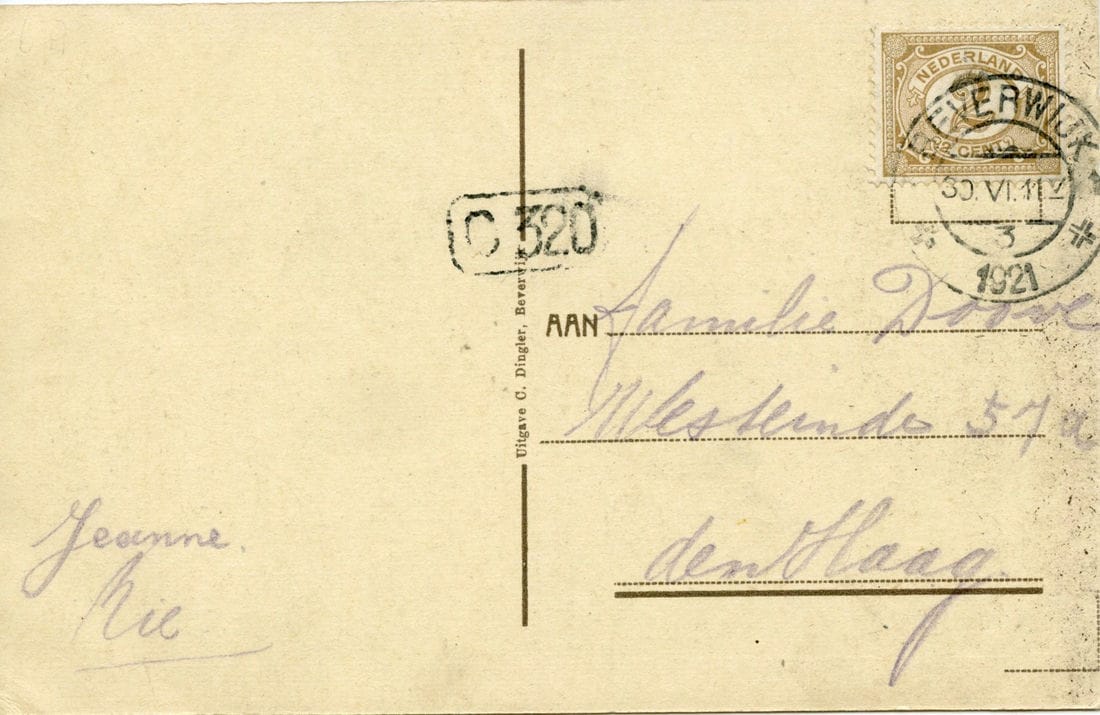 NEDERLAND
2½ CENT
BEVERWIJK
30.VI.11V
3
1921
C 320
Uitgave C. Dingler, Beverwijk
AAN Familie Doove
Westeinde 57a
den Haag.
Jeanne.
Rie